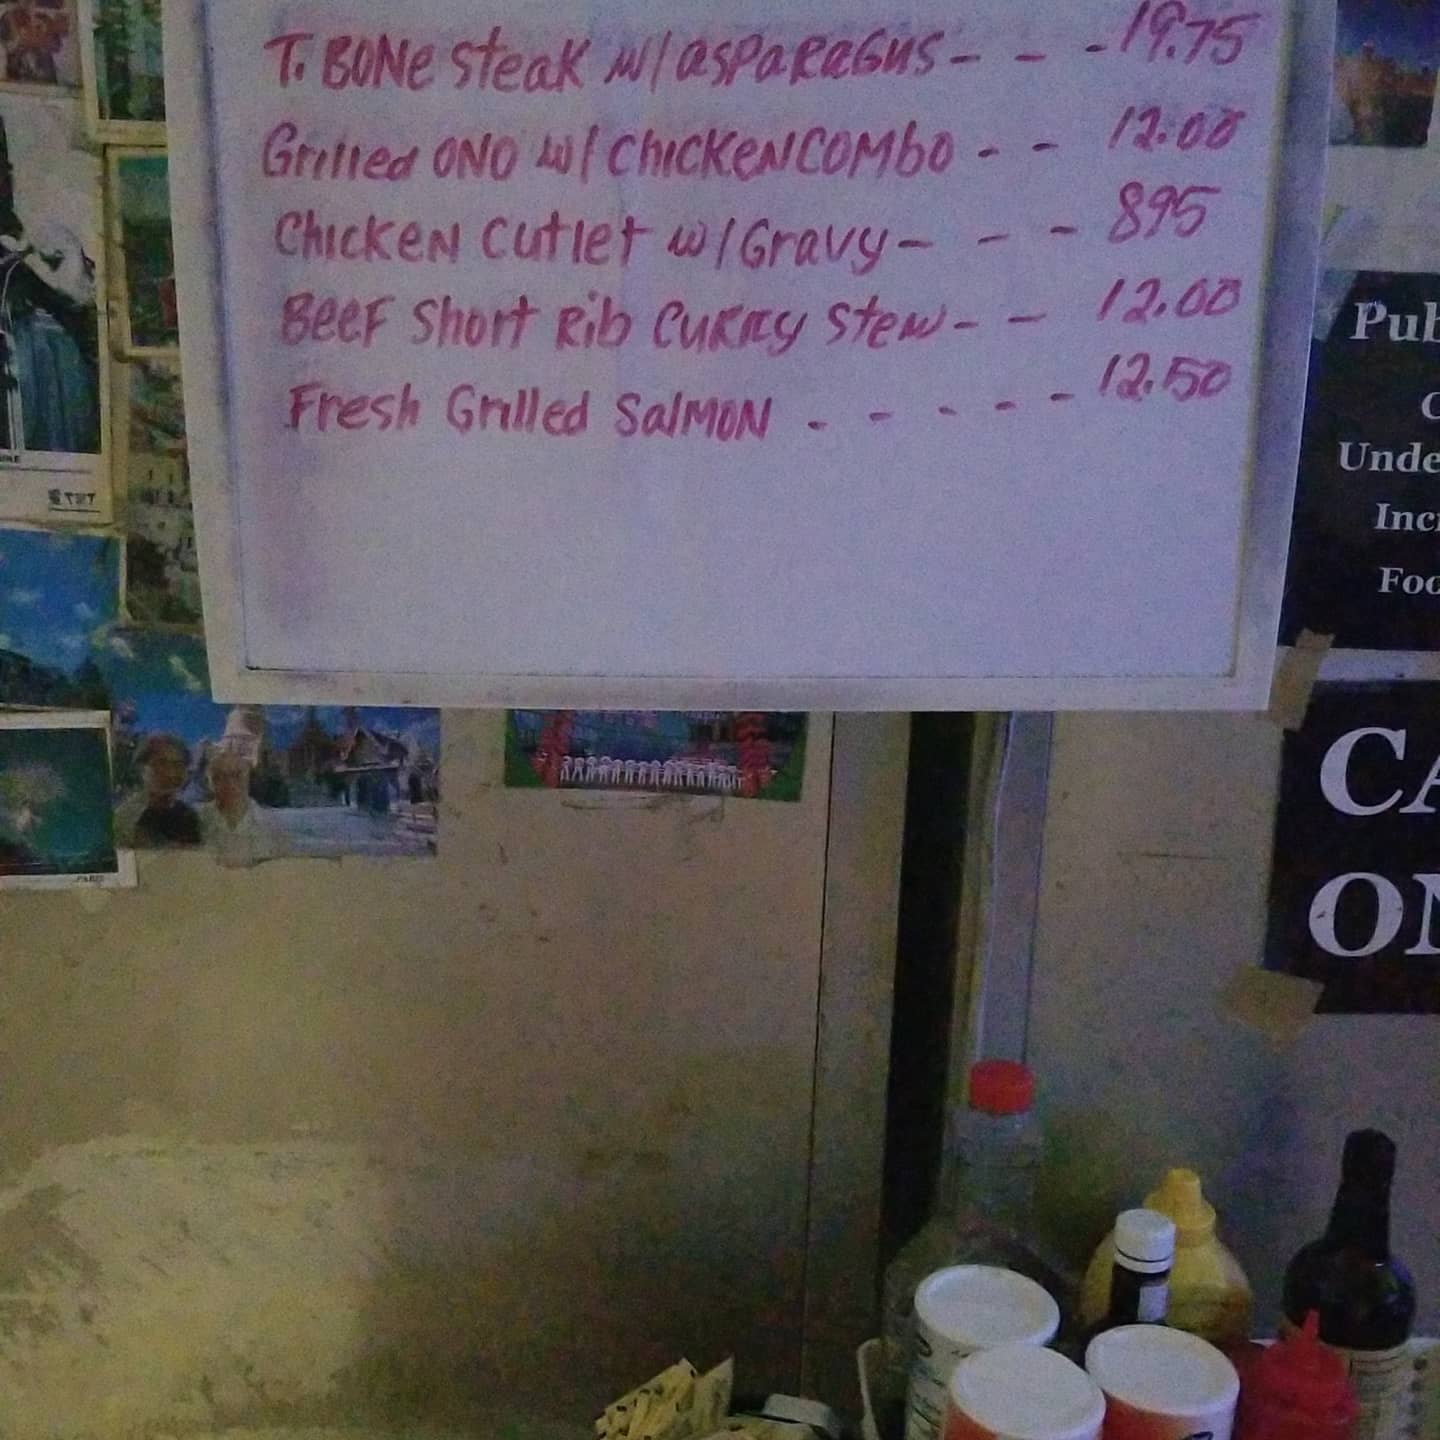 T. BONe steak w/asparagus - - - 19.75
Grilled ONO w/ChickeN COMbo - - 12.00
ChickeN Cutlet w/Gravy - - - 895
Beef Short Rib Curry Stew - - 12.00
Fresh Grilled SalMON - - - - - 12.50
Pub
Unde
Inc
Foo
CA
ON
PARIS